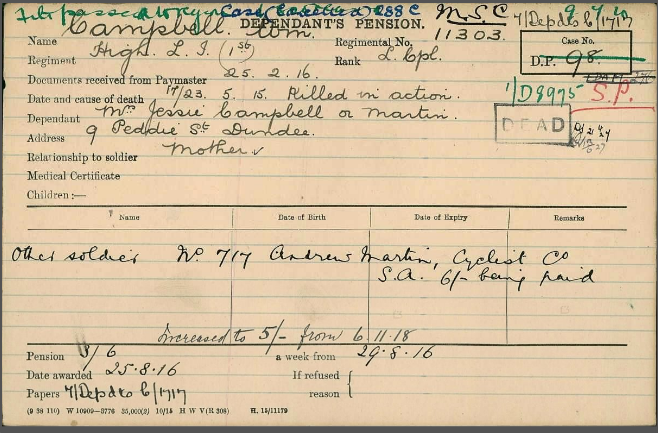 M.S.C
DEPENDANT'S PENSION.
7/Depdts 6/17/17
Name Campbell. Wm. Regimental No. 11303.
Case No.
Regiment High. L. I. (1st) Rank L. Cpl.
D.P. 98.
Documents received from Paymaster 25. 2. 16.
1/D8975
S.P.
Date and cause of death 17/23. 5. 15. Killed in action.
Dependant Mrs Jessie Campbell or Martin.
DEAD
Address 9 Peddie St Dundee.
Relationship to soldier Mother
Medical Certificate
Children:—
Name Date of Birth Date of Expiry Remarks
Other soldier No. 717 Andrew Martin, Cyclist Co
S.A. 6/- being paid
Increased to 5/- from 6.11.18
Pension 3/6 a week from 29.8.16
Date awarded 25.8.16 If refused
Papers 7/Depdts 6/17/17 reason
(9 38 110) W 10909—3776 35,000(2) 10/15 H W V(R 308) H. 15/11179